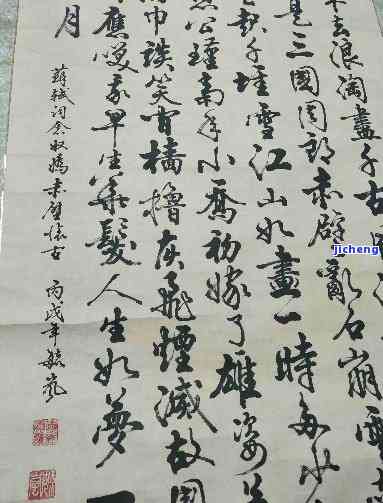 去浪淘盡千古
是三國周郎赤壁亂石崩雲
千堆雪江山如畫一時多少
公瑾當年小喬初嫁了雄姿
巾談笑間檣櫓灰飛煙滅故國
應笑我早生華髮人生如夢一
月
蘇軾词念奴嬌赤壁懷古 丙戌年毓嵐
jicheng